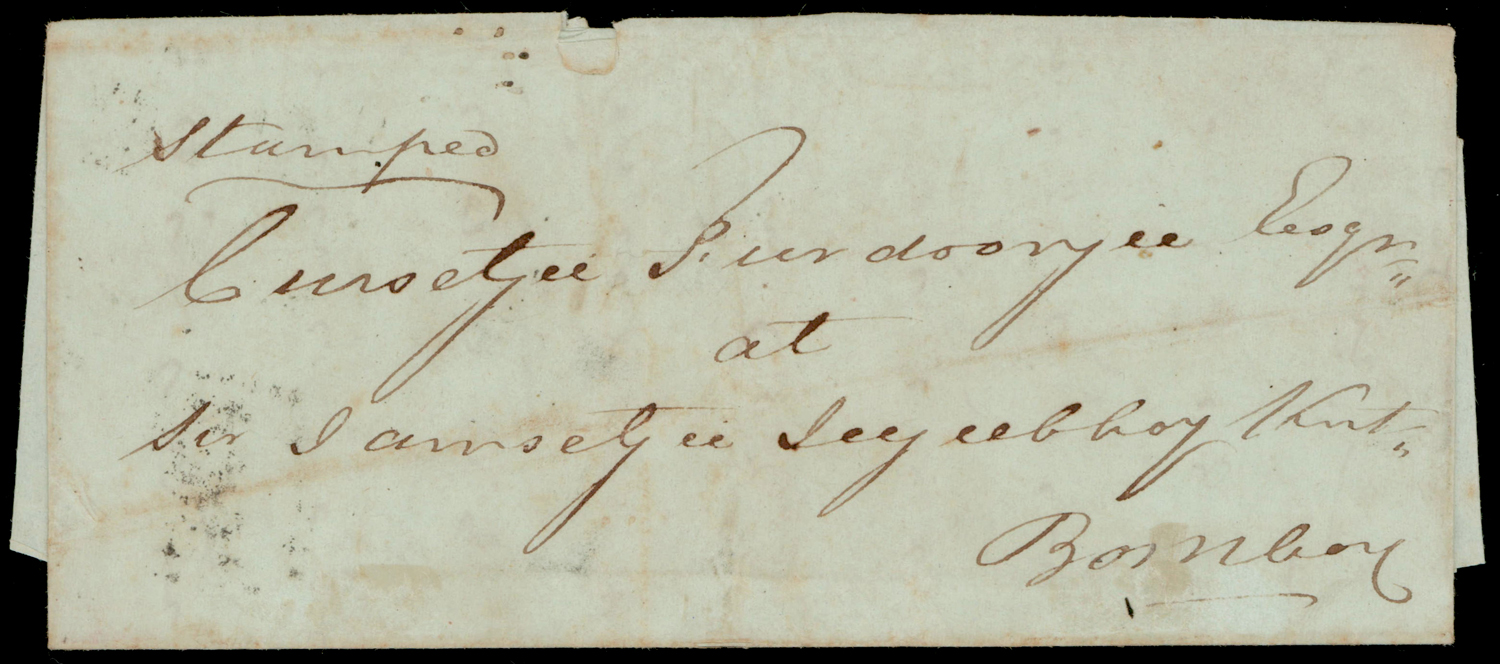 Stamped
Cursetjee Furdoonjee Esqr„
at
Sir Jamsetjee Jeejeebhoy Knt„
Bombay